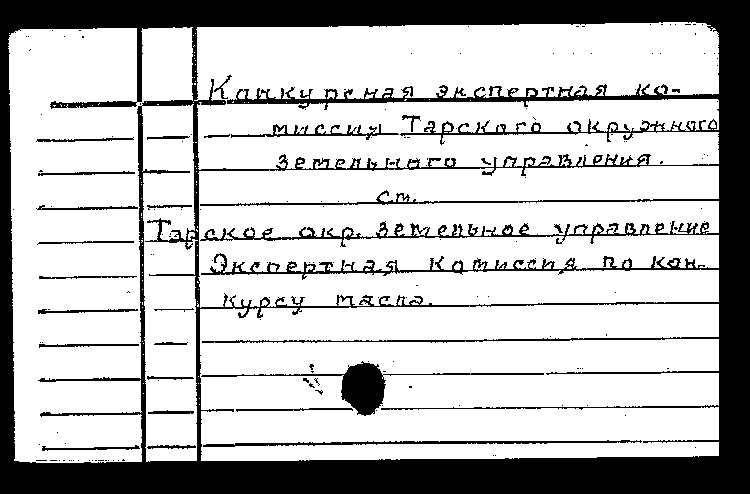 Конкурсная экспертная ко-
миссия Тарского окружного
земельного управления.
см.
Тарское окр. земельное управление
Экспертная комиссия по кон-
курсу масла.